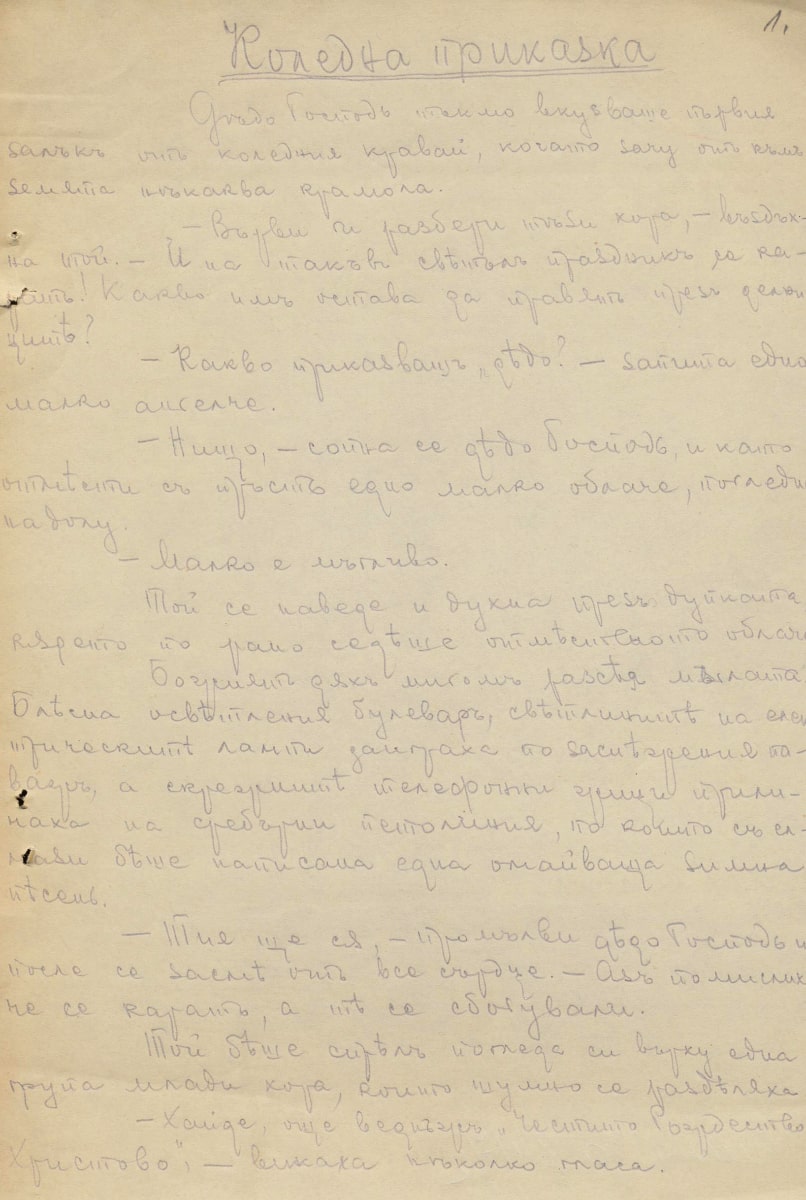 1.
Коледна приказка
Дѣдо Господь тъкмо вкусваше първия
залъкъ отъ коледния кравай, когато зачу отъ къмъ
земята нѣкаква крамола.
— Върви и разбери тѣзи хора, — въздъх-
на той. — И на такъвъ свѣтълъ праздникъ се ка-
ратъ! Какво имъ остава да правятъ презъ делни
цитѣ?
— Какво приказвашъ, дѣдо? — запита едно
малко ангелче.
— Нищо, — сопна се дѣдо Господь, и като
отмѣсти съ пръстъ едно малко облаче, погледн
надолу.
— Малко е мъгливо.
Той се наведе и духна презъ дупката
кѫдето по рано седѣше отмѣстеното облаче
Божиятъ дъхъ мигомъ разсѣя мъглата.
Блѣсна осветления булеваръ, свѣтлинитѣ на елек
трическитѣ лампи заиграха по заснѣжения па-
важъ, а скрежнитѣ телефонни жици прили-
чаха на сребърни петолиния, по които съ ел-
мази бѣше написана една омайваща зимна
пѣсень.
— Тия ще сѫ, — промълви дѣдо Господь и
после се заснѣ отъ все сърдце. — Азъ помислих
че се каратъ, а тѣ се сбогували.
Той бѣше спрѣлъ погледа си върху една
група млади хора, които шумно се раздѣляха
— Хайде, още веднъжъ „Честито Рождество
Христово", — викаха нѣколко гласа.